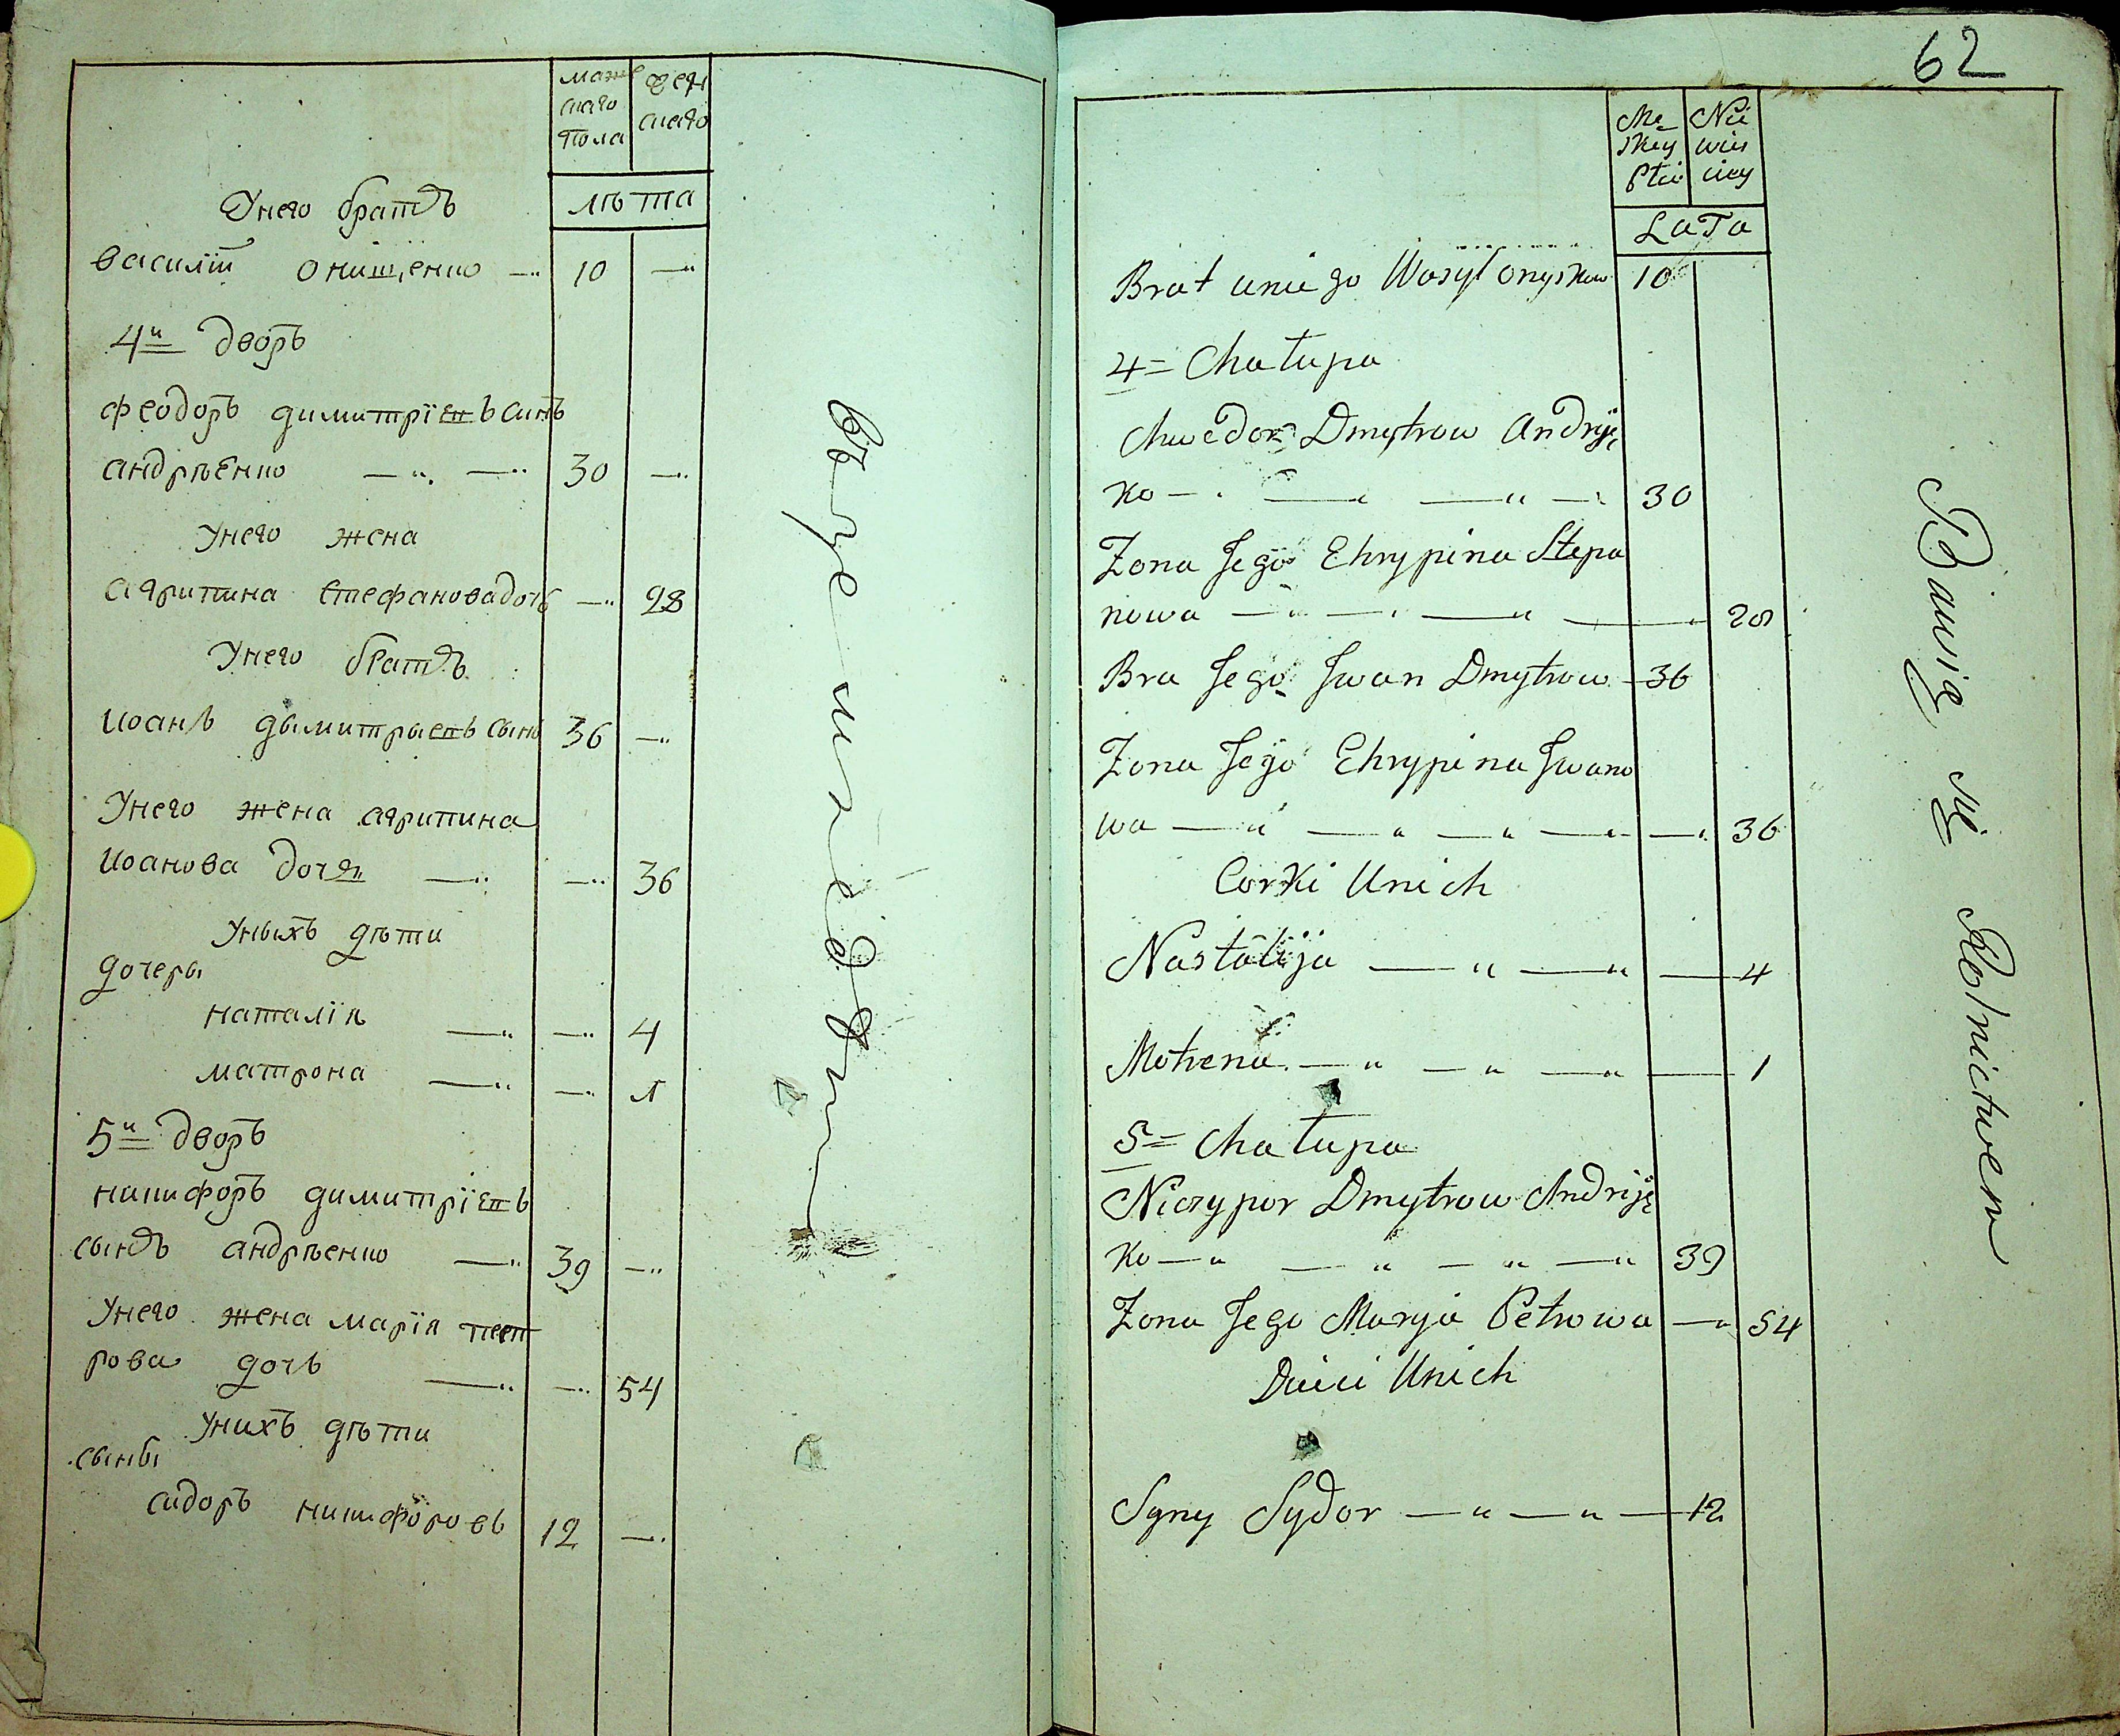 мажс
скаго
пола
жен
скаго
лѣта
Унего братъ
василій онищенко — 10 —
4й дворъ
феодоръ димитріевъ синъ
андрѣенко — — 30 —
Унего жена
агрипина стефанова дочь — 28
Унего братъ
иоанъ дымитрыевъ сынъ 36 —
Унего жена агрипина
иоанова дочь — — 36
Уныхъ дѣти
дочеры
наталія — — 4
матрона — — 1
5й дворъ
никифоръ димитріевъ
сынъ андрѣенко — 39 —
Унего жена марія пет
рова дочь — — 54
Унихъ дѣти
сыны
сидоръ никифоровъ 12 —
62
Mę
skey
Płci
Nie
wies
ciey
LaTa
Brat uniego Wasyl Onysko 10
4 = Chałupa
Chwedor Dmytrow Andryię
ko — — — — 30
Zona Jego Ehrypina Stepa
nowa — — — — 28
Bra Jego Jwan Dmytrow — 36
Zona Jego Ehrypina Jwano
wa — — — — — 36
Corki Unich
Nastalija — — — 4
Motrena — — — — 1
5 = Chałupa
Niczypor Dmytrow Andriję
ko — — — — 39
Zona Jego Maryia Petrowa — 54
Dzieci Unich
Syny Sydor — — — 12
Bawię się Rolnictwem